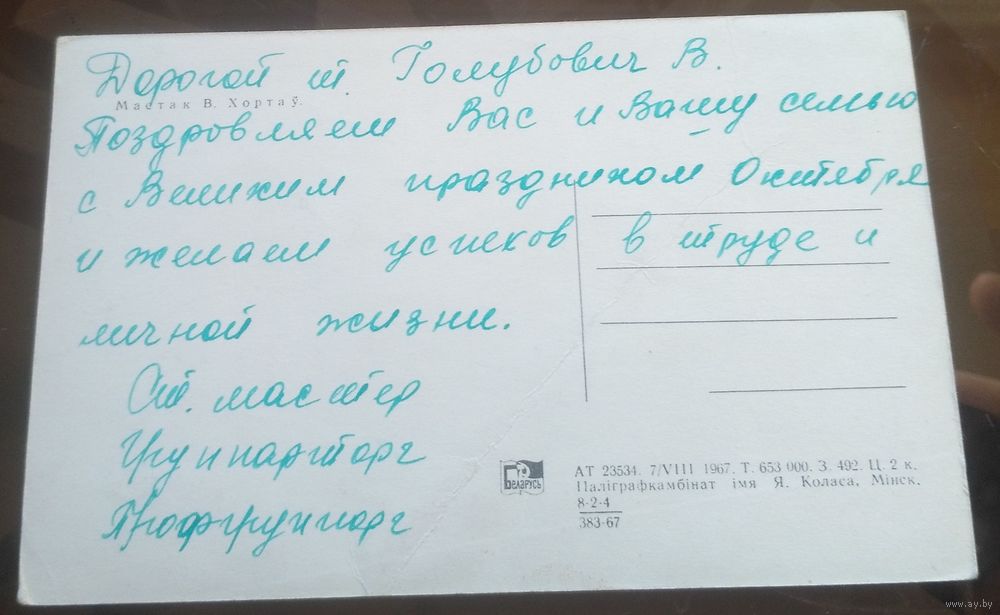 Дорогой т. Голубович В.
Мастак В. Хортаў.
Поздровляем Вас и Вашу семью
с Великим праздником Октября
и желаем успехов в труде и
личной жизни.
Ст. мастер
Группартторг
Профгруппорг
БЕЛАРУСЬ
АТ 23534. 7/VIII 1967. Т. 653 000. З. 492. Ц. 2 к.
Паліграфкамбінат імя Я. Коласа, Мінск.
8-2-4
383-67
www.ay.by